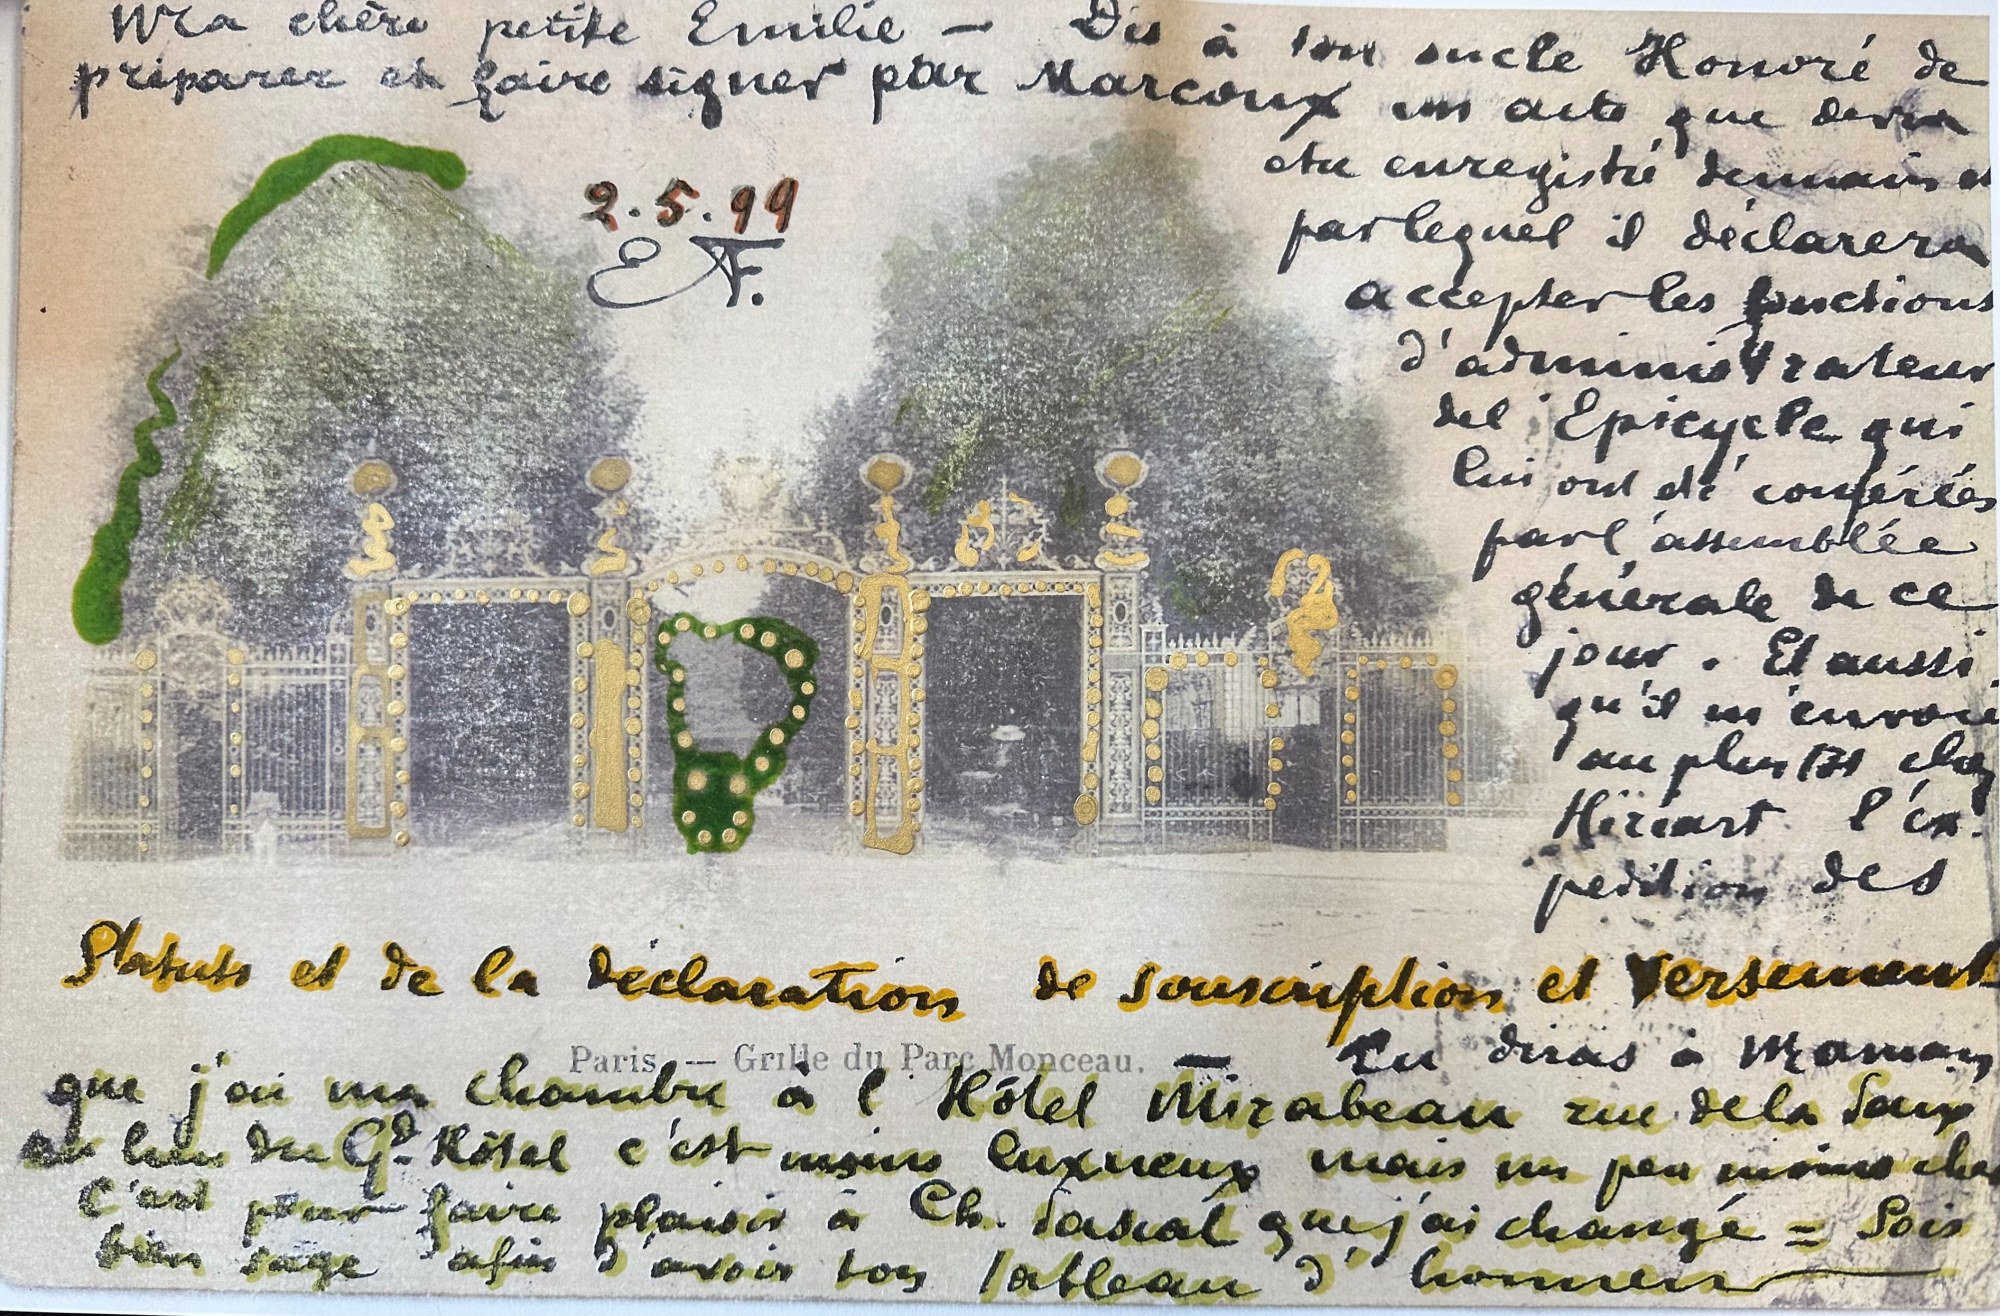 Ma chère petite Emilie — Dis à ton oncle Honoré de
préparer et faire signer par Marcoux un acte que devra
etre enregistré demain et
par lequel il déclarera
accepter les fonctions
d'administrateur
de l'Epicycle qui
lui ont été conférées
par l'assemblée
générale de ce
jour. Et aussi
qu'il m'envoie
au plus tôt chez
Hiriart l'ex-
pedition des
2.5.99
EAF.
Statuts et de la déclaration de souscription et versement
Paris — Grille du Parc Monceau.
— Tu diras à Maman
que j'ai ma chambre à l'Hôtel Mirabeau rue de la Paix
au lieu du Gd. Hôtel c'est moins luxueux mais un peu moins cher
C'est pour faire plaisir à Ch. Pascal que j'ai changé = Sois
bien sage afin d'avoir ton tableau d'honneur